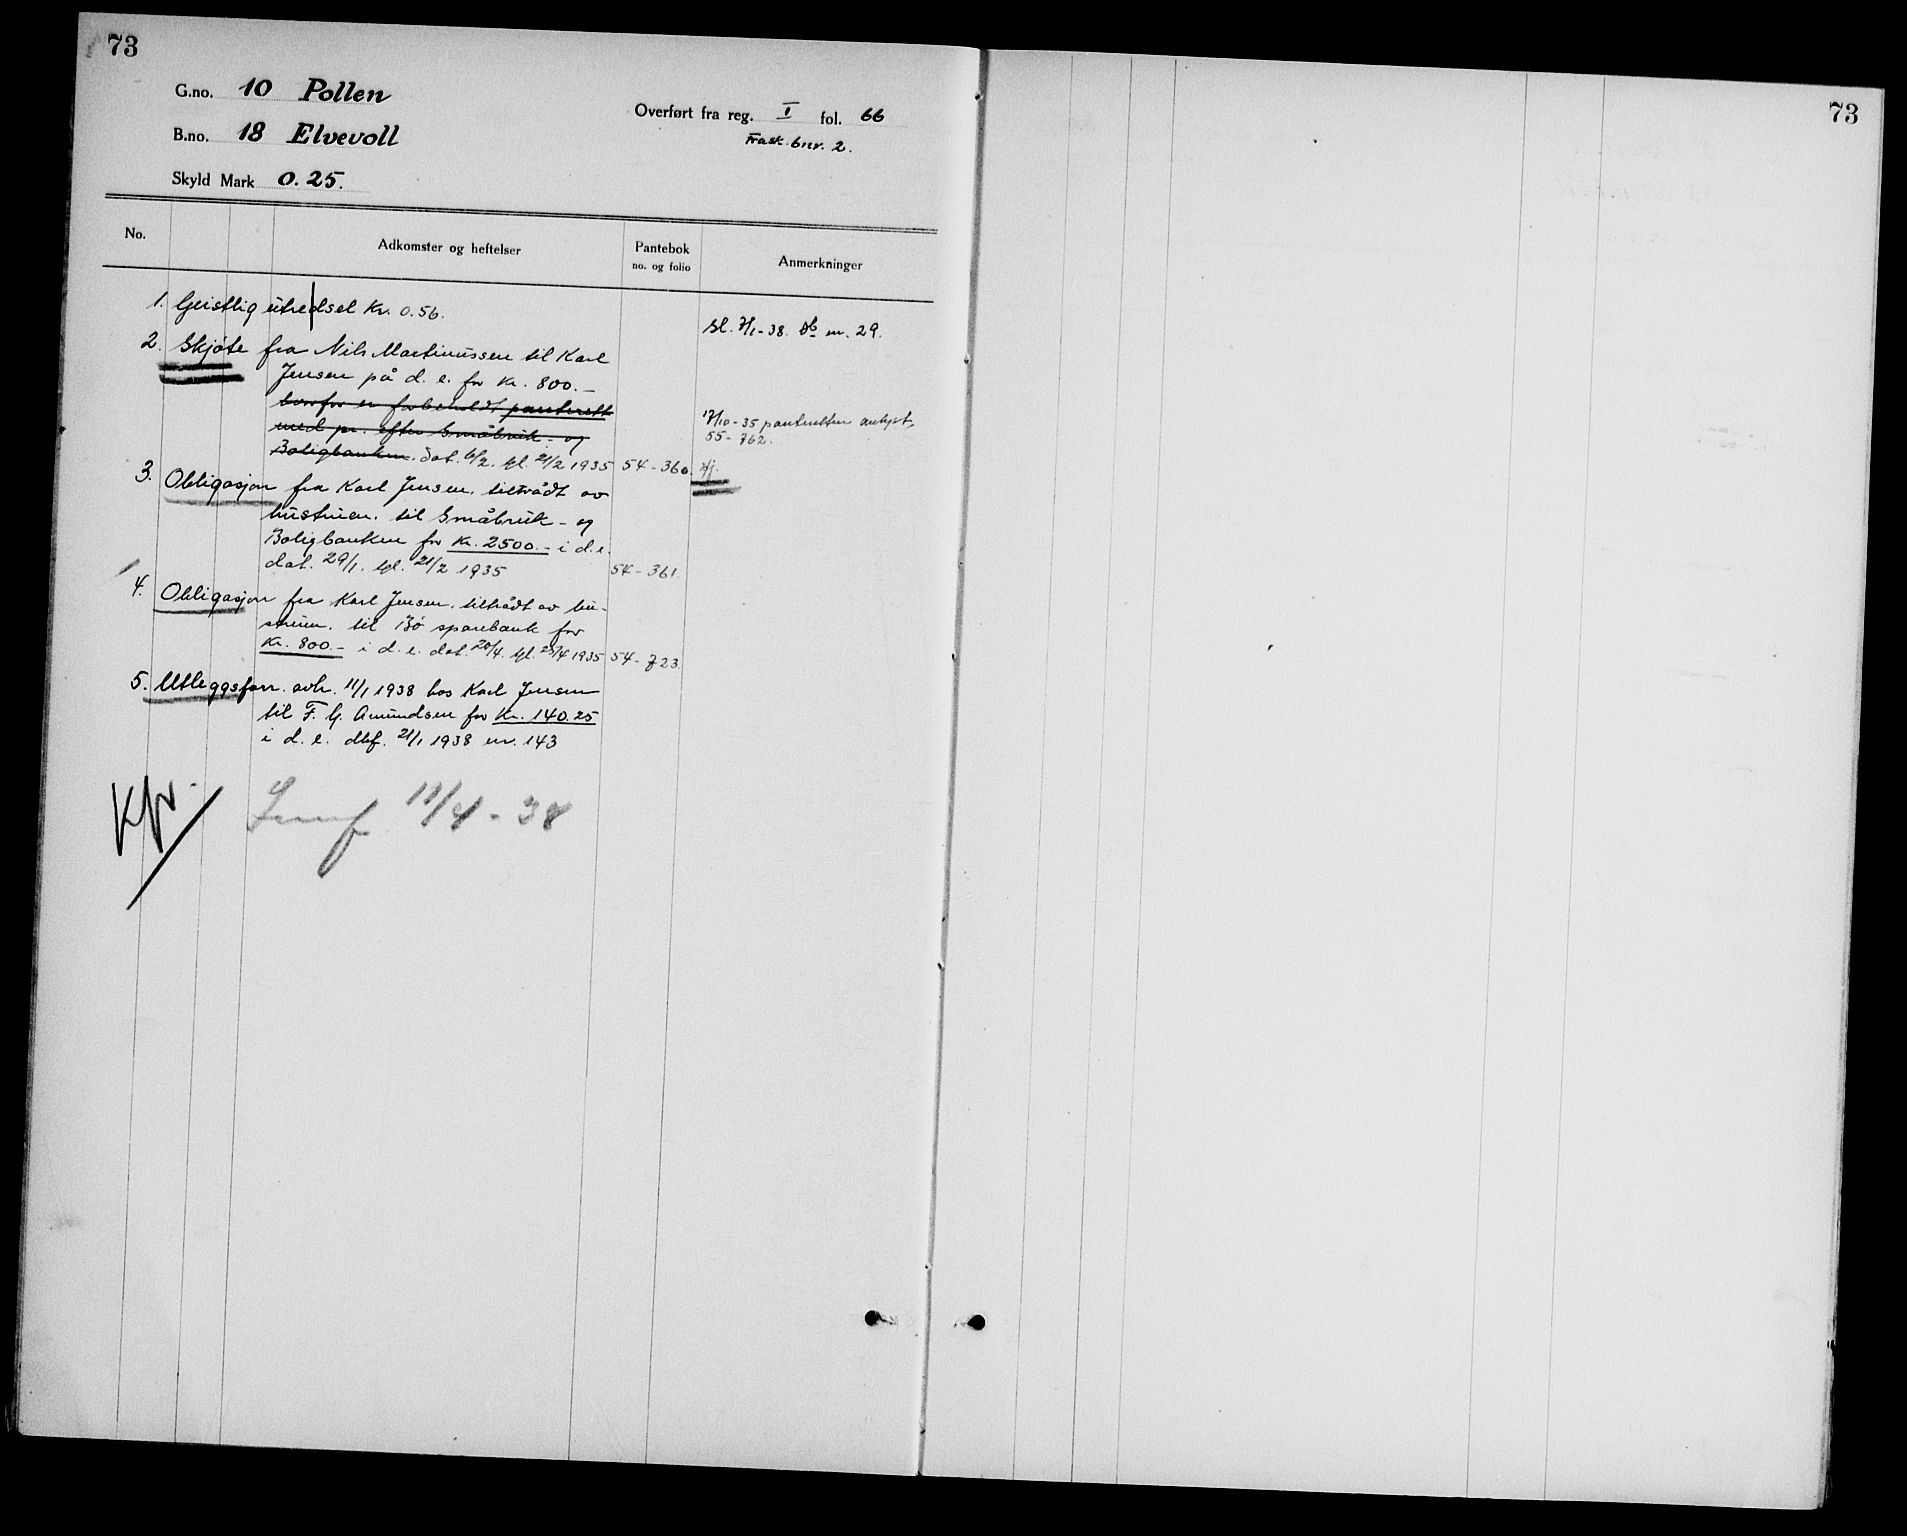 73
G.no. 10 Pollen
Overført fra reg. I fol. 66
B.no. 18 Elvevoll
Frask. bnr. 2.
Skyld Mark 0.25.
No. Adkomster og heftelser Pantebok no. og folio Anmerkninger
1. Geistlig utredsel Kr. 0.56.
sl. 7/1-38. Db nr. 29.
2. Skjöte fra Nils Martinussen til Karl
Jensen på d. e. for kr. 800.-
hvorfor er forbeholdt panterett
med pr. efter Småbruk- og
Boligbanken. dat. 6/2. tgl. 21/2 1935 54-360.
17/10-35 panteretten avlyst,
55-762.
3. Obligasjon fra Karl Jensen, tiltrådt av
hustruen, til Småbruk- og
Boligbanken for kr. 2500.- i d.e.
dat. 29/1. tgl. 21/2 1935 54-361.
4. Obligasjon fra Karl Jensen, tiltrådt av hu-
struen, til Bö sparebank for
kr. 800.- i d. e. dat. 20/4. tgl. 25/4 1935 54-723.
5. Utleggsforr. avh. 11/1 1938 hos Karl Jensen
til F. G. Amundsen for Kr. 140.25
i d. e. dbf. 21/1 1938 nr. 143
Kfr.
11/4-38
73